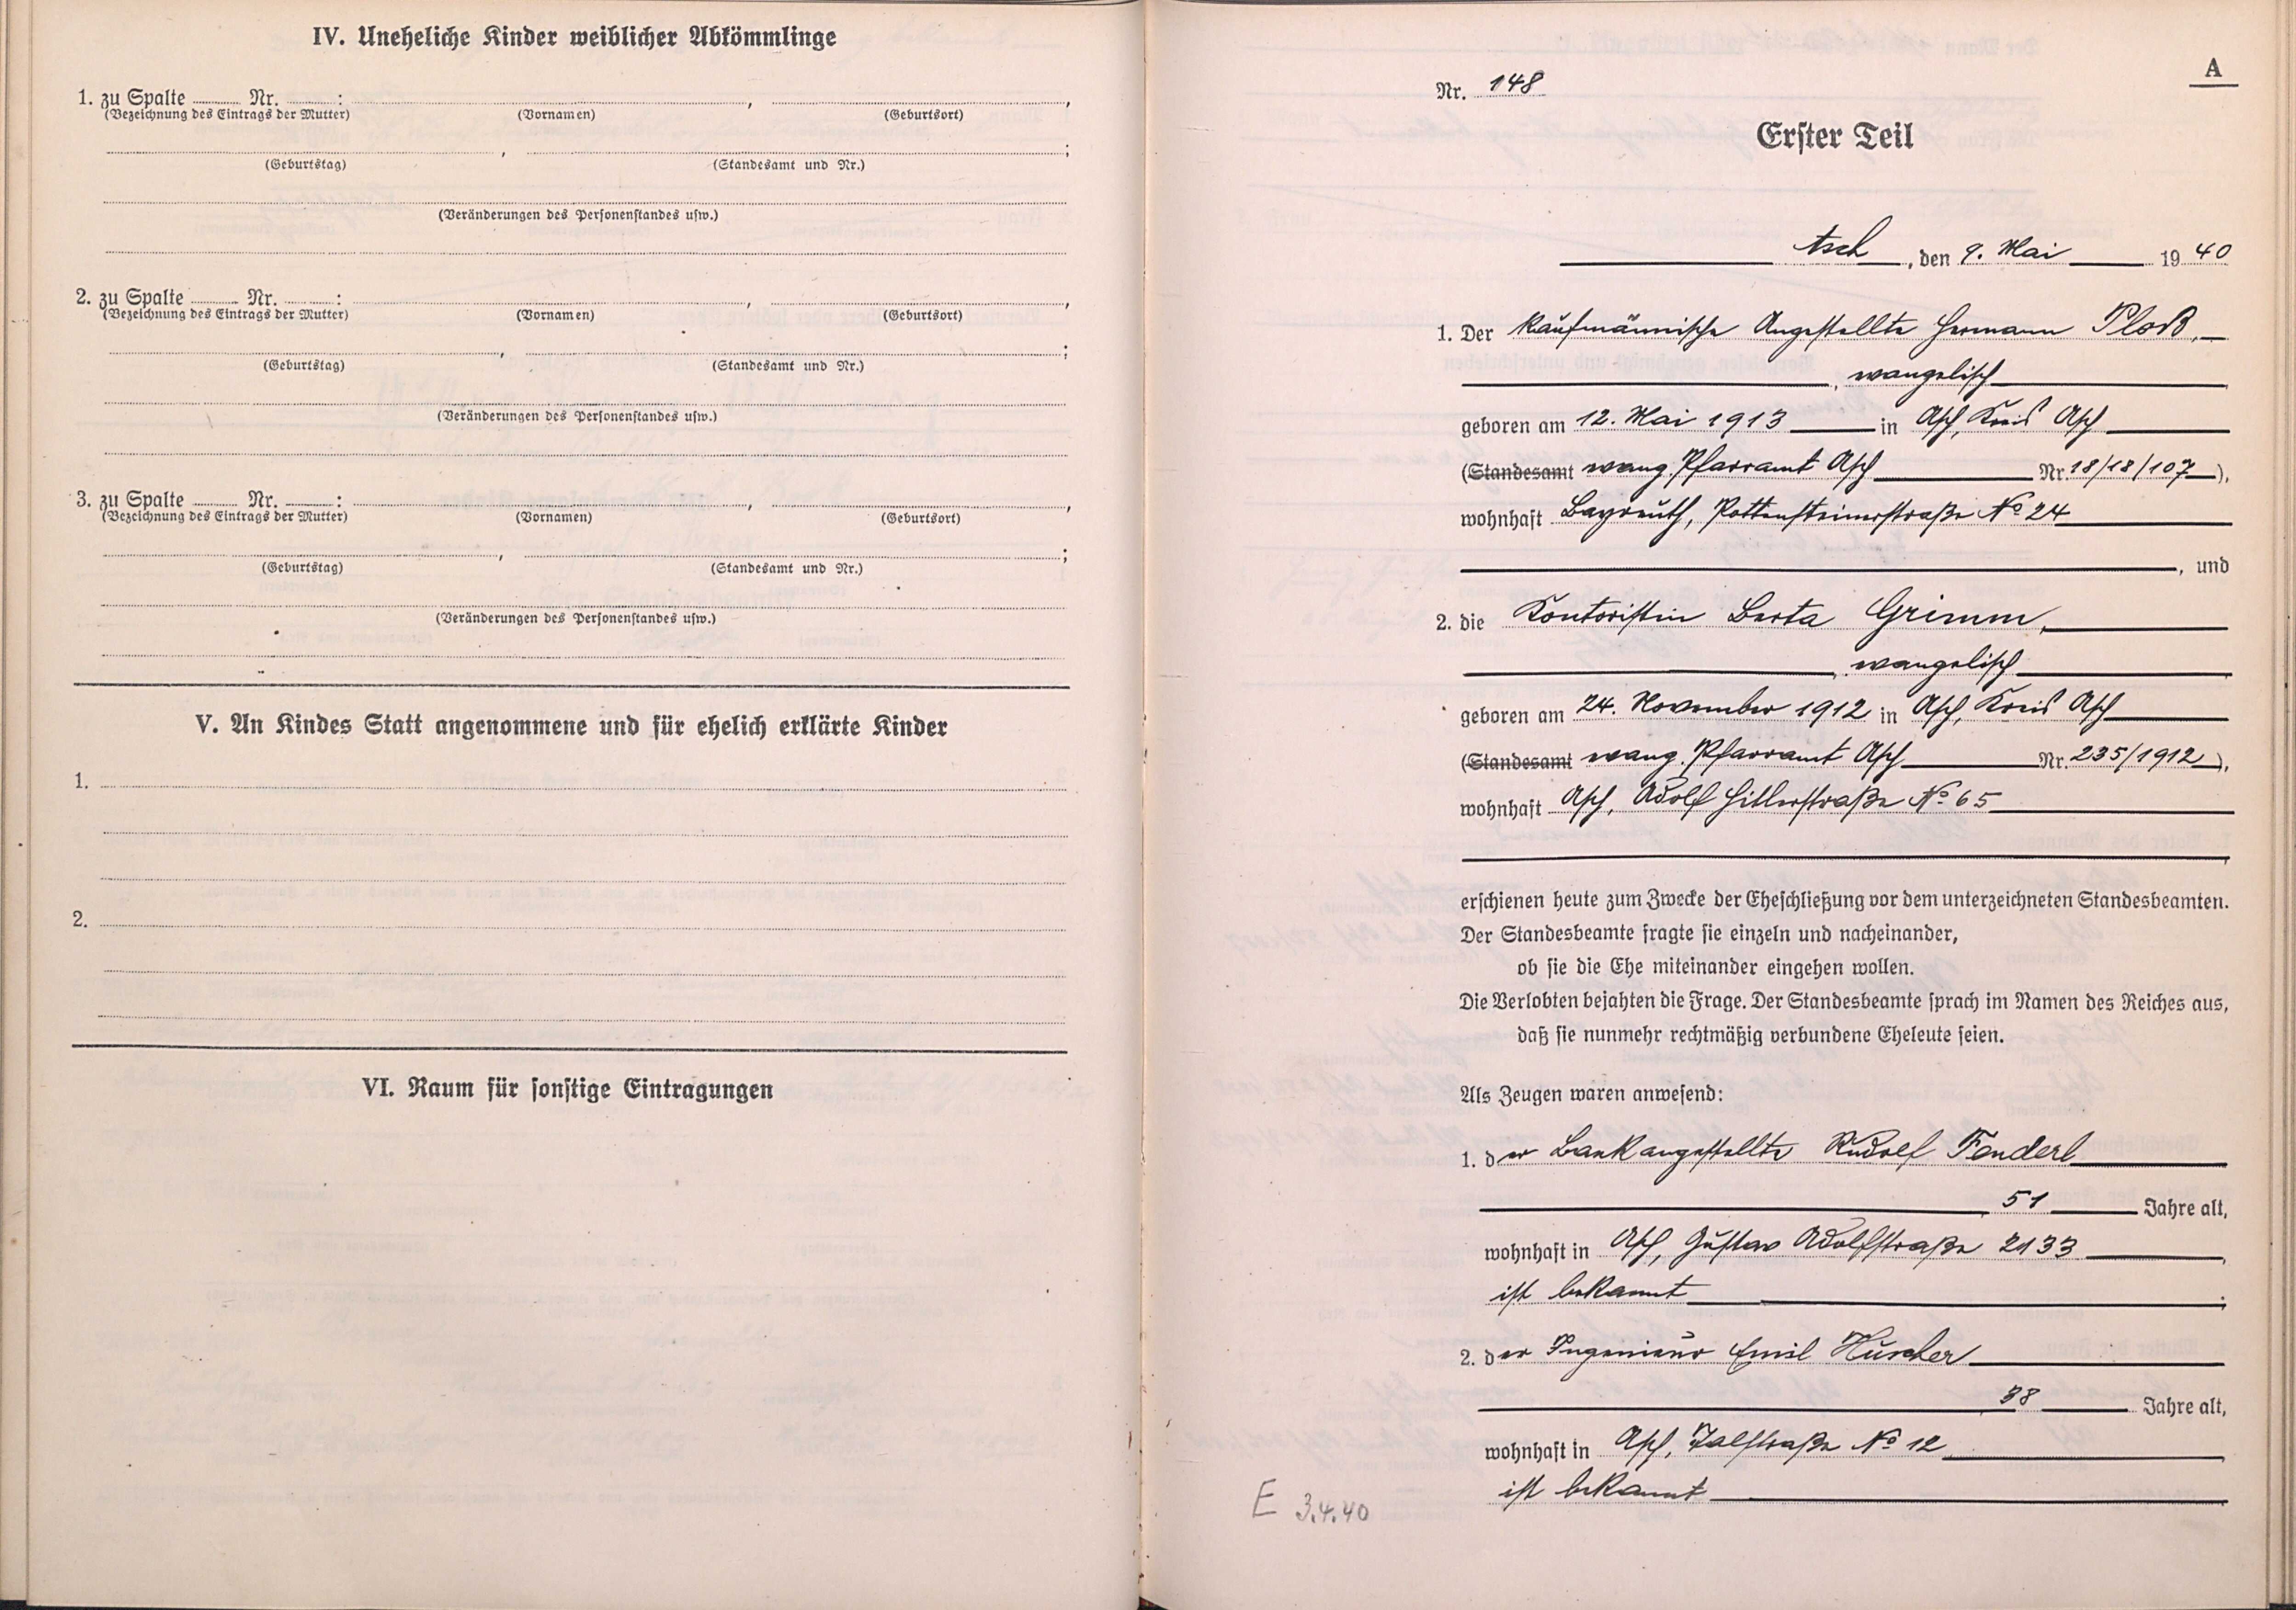 IV. Uneheliche Kinder weiblicher Abkömmlinge
1. zu Spalte ........ Nr. ........ : , ,
(Bezeichnung des Eintrags der Mutter) (Vornamen) (Geburtsort)
, ;
(Geburtstag) (Standesamt und Nr.)
(Veränderungen des Personenstandes usw.)
2. zu Spalte ........ Nr. ........ : , ,
(Bezeichnung des Eintrags der Mutter) (Vornamen) (Geburtsort)
, ;
(Geburtstag) (Standesamt und Nr.)
(Veränderungen des Personenstandes usw.)
3. zu Spalte ........ Nr. ........ : , ,
(Bezeichnung des Eintrags der Mutter) (Vornamen) (Geburtsort)
, ;
(Geburtstag) (Standesamt und Nr.)
(Veränderungen des Personenstandes usw.)
V. An Kindes Statt angenommene und für ehelich erklärte Kinder
1.
2.
VI. Raum für sonstige Eintragungen
A
Nr. 148
Erster Teil
Asch, den 9. Mai 1940
1. Der kaufmännische Angestellte Hermann Ploß,
, evangelisch
geboren am 12. Mai 1913 in Asch, Kreis Asch
(Standesamt evang. Pfarramt Asch Nr. 18/18/107),
wohnhaft Bayreuth, Pottensteinerstraße No 24
, und
2. die Kontoristin Berta Grimm,
, evangelisch
geboren am 24. November 1912 in Asch, Kreis Asch
(Standesamt evang. Pfarramt Asch Nr. 235/1912),
wohnhaft Asch, Adolf Hitlerstraße No 65
erschienen heute zum Zwecke der Eheschließung vor dem unterzeichneten Standesbeamten.
Der Standesbeamte fragte sie einzeln und nacheinander,
ob sie die Ehe miteinander eingehen wollen.
Die Verlobten bejahten die Frage. Der Standesbeamte sprach im Namen des Reiches aus,
daß sie nunmehr rechtmäßig verbundene Eheleute seien.
Als Zeugen waren anwesend:
1. der Bankangestellte Rudolf Fenderl
51 Jahre alt,
wohnhaft in Asch, Gustav Adolfstraße 2133,
ist bekannt;
2. der Ingenieur Emil Hüscher
38 Jahre alt,
wohnhaft in Asch, Talstraße No 12,
ist bekannt
E 3.4.40